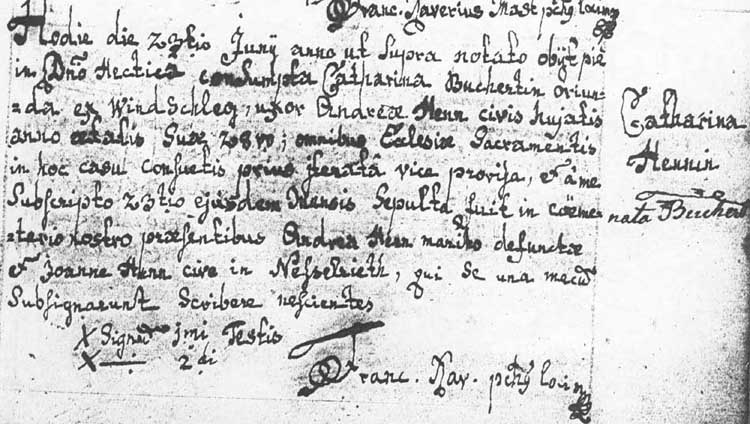 Franc. Xaverius Mast pchÿ loci mp
Hodie die 23tio Junÿ anno ut supra notato obÿt pie
in Dno Hectica consumpta Catharina Buchertin oriun-
-da ex Windschleg, uxor Andreæ Henn civis hujatis
anno ætatis suæ 28vo; omnibus Eclesiæ Sacramentis
in hoc casu consuetis prius iteratâ vice provisa, et à me
Subscripto 23tio ejusdem Mensis Sepulta fuit in cœme-
-terio nostro præsentibus Andrea Henn marito defunctæ
et Joanne Henn cive in Nesselrieth, qui se una mecū
Subsignarunt Scribere nescientes
X Signū 1mi Testis
X — 2di
Franc. Xav. pchÿ loci mp
Catharina
Hennin
nata Buchert